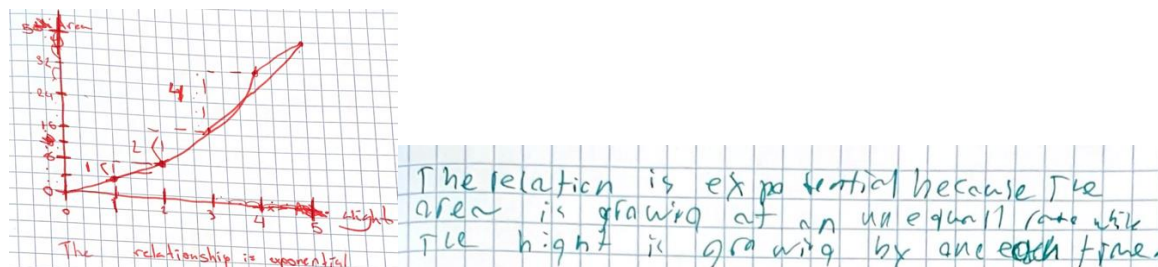 Area
32
24
16
8
0
4
2
1
0
1
2
3
4
5
The relationship is exponential
The relation is expotential because The
area is grawing at an unequall rate while
The hight is grawing by one each time.